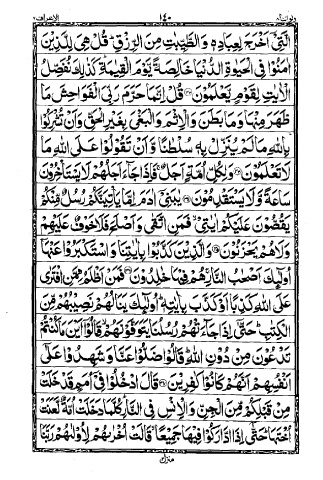 ولو اننا ٨ ١٤٠ الاعراف ٧
الَّتِیْۤ اَخْرَجَ لِعِبَادِهٖ وَالطَّیِّبٰتِ مِنَ الرِّزْقِ ؕ قُلْ هِیَ لِلَّذِیْنَ
اٰمَنُوْا فِی الْحَیٰوةِ الدُّنْیَا خَالِصَةً یَّوْمَ الْقِیٰمَةِ ؕ كَذٰلِكَ نُفَصِّلُ
الْاٰیٰتِ لِقَوْمٍ یَّعْلَمُوْنَ ۝ قُلْ اِنَّمَا حَرَّمَ رَبِّیَ الْفَوَاحِشَ مَا
ظَهَرَ مِنْهَا وَمَا بَطَنَ وَالْاِثْمَ وَالْبَغْیَ بِغَیْرِ الْحَقِّ وَاَنْ تُشْرِكُوْا
بِاللّٰهِ مَا لَمْ یُنَزِّلْ بِهٖ سُلْطٰنًا وَّاَنْ تَقُوْلُوْا عَلَی اللّٰهِ مَا
لَا تَعْلَمُوْنَ ۝ وَلِكُلِّ اُمَّةٍ اَجَلٌ ۚ فَاِذَا جَآءَ اَجَلُهُمْ لَا یَسْتَاْخِرُوْنَ
سَاعَةً وَّلَا یَسْتَقْدِمُوْنَ ۝ یٰبَنِیْۤ اٰدَمَ اِمَّا یَاْتِیَنَّكُمْ رُسُلٌ مِّنْكُمْ
یَقُصُّوْنَ عَلَیْكُمْ اٰیٰتِیْ ۙ فَمَنِ اتَّقٰی وَاَصْلَحَ فَلَا خَوْفٌ عَلَیْهِمْ
وَلَا هُمْ یَحْزَنُوْنَ ۝ وَالَّذِیْنَ كَذَّبُوْا بِاٰیٰتِنَا وَاسْتَكْبَرُوْا عَنْهَاۤ
اُولٰٓئِكَ اَصْحٰبُ النَّارِ ۚ هُمْ فِیْهَا خٰلِدُوْنَ ۝ فَمَنْ اَظْلَمُ مِمَّنِ افْتَرٰی
عَلَی اللّٰهِ كَذِبًا اَوْ كَذَّبَ بِاٰیٰتِهٖ ؕ اُولٰٓئِكَ یَنَالُهُمْ نَصِیْبُهُمْ مِّنَ
الْكِتٰبِ ؕ حَتّٰۤی اِذَا جَآءَتْهُمْ رُسُلُنَا یَتَوَفَّوْنَهُمْ ۙ قَالُوْۤا اَیْنَ مَا كُنْتُمْ
تَدْعُوْنَ مِنْ دُوْنِ اللّٰهِ ؕ قَالُوْا ضَلُّوْا عَنَّا وَشَهِدُوْا عَلٰۤی
اَنْفُسِهِمْ اَنَّهُمْ كَانُوْا كٰفِرِیْنَ ۝ قَالَ ادْخُلُوْا فِیْۤ اُمَمٍ قَدْ خَلَتْ
مِنْ قَبْلِكُمْ مِّنَ الْجِنِّ وَالْاِنْسِ فِی النَّارِ ؕ كُلَّمَا دَخَلَتْ اُمَّةٌ لَّعَنَتْ
اُخْتَهَا ؕ حَتّٰۤی اِذَا ادَّارَكُوْا فِیْهَا جَمِیْعًا ۙ قَالَتْ اُخْرٰىهُمْ لِاُوْلٰىهُمْ رَبَّنَا
منزل ٢